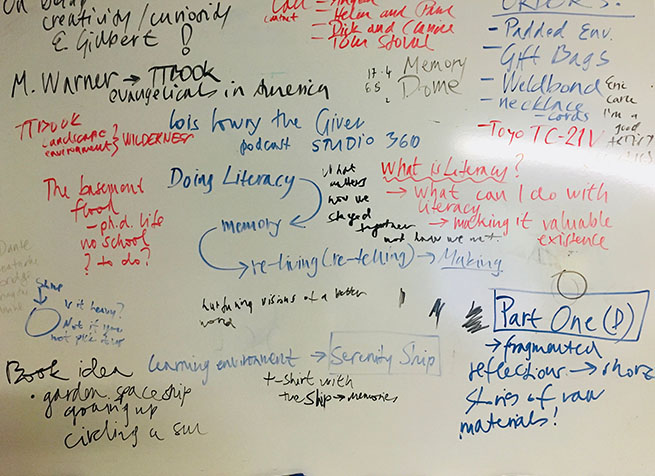 On being
creativity/curiosity
E Gilbert!
Call
contact
- Helen and
- Dick and
- Tom
ORDERS:
- Padded Env.
- Gift Bags
- Weldbond
- necklace
- cords
- Toyo TC-21V
Eric
Carle
I'm a
good
M. Warner → TTBOOK
evangelicals in America
17.4
6.5
Memory
Dome
TTBOOK
landscape?
environment?
WILDERNESS
Lois Lowry the Giver
podcast STUDIO 360
The basement
flood
- ph.d. life
no school
? to do?
Doing Literacy
memory
→ re-living (re-telling) → Making
what
matters
how we
stayed
together
not how we met.
What is Literacy?
→ what can I do with
literacy
→ making it valuable
existence
Dante
Stone
Is it heavy?
Not if you
not pick it up
nurturing visions of a better
world
Part One (D)
→ fragmented
reflections → short
stories of raw
materials!
Book idea
• garden spaceship
growing up
circling a sun
learning environment → Serenity Ship
t-shirt with
the ship → memories